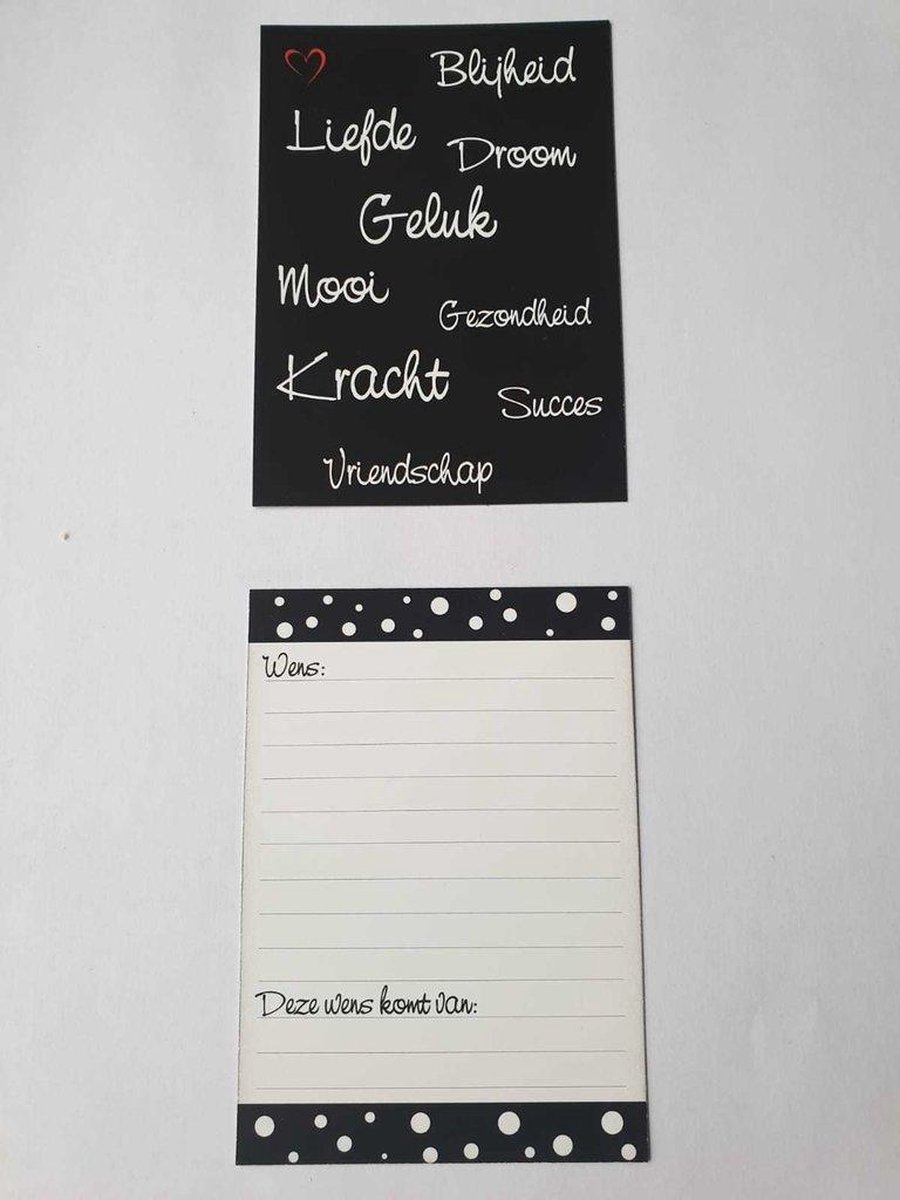 Blijheid
Liefde
Droom
Geluk
Mooi
Gezondheid
Kracht
Succes
Vriendschap
Wens:
Deze wens komt van: